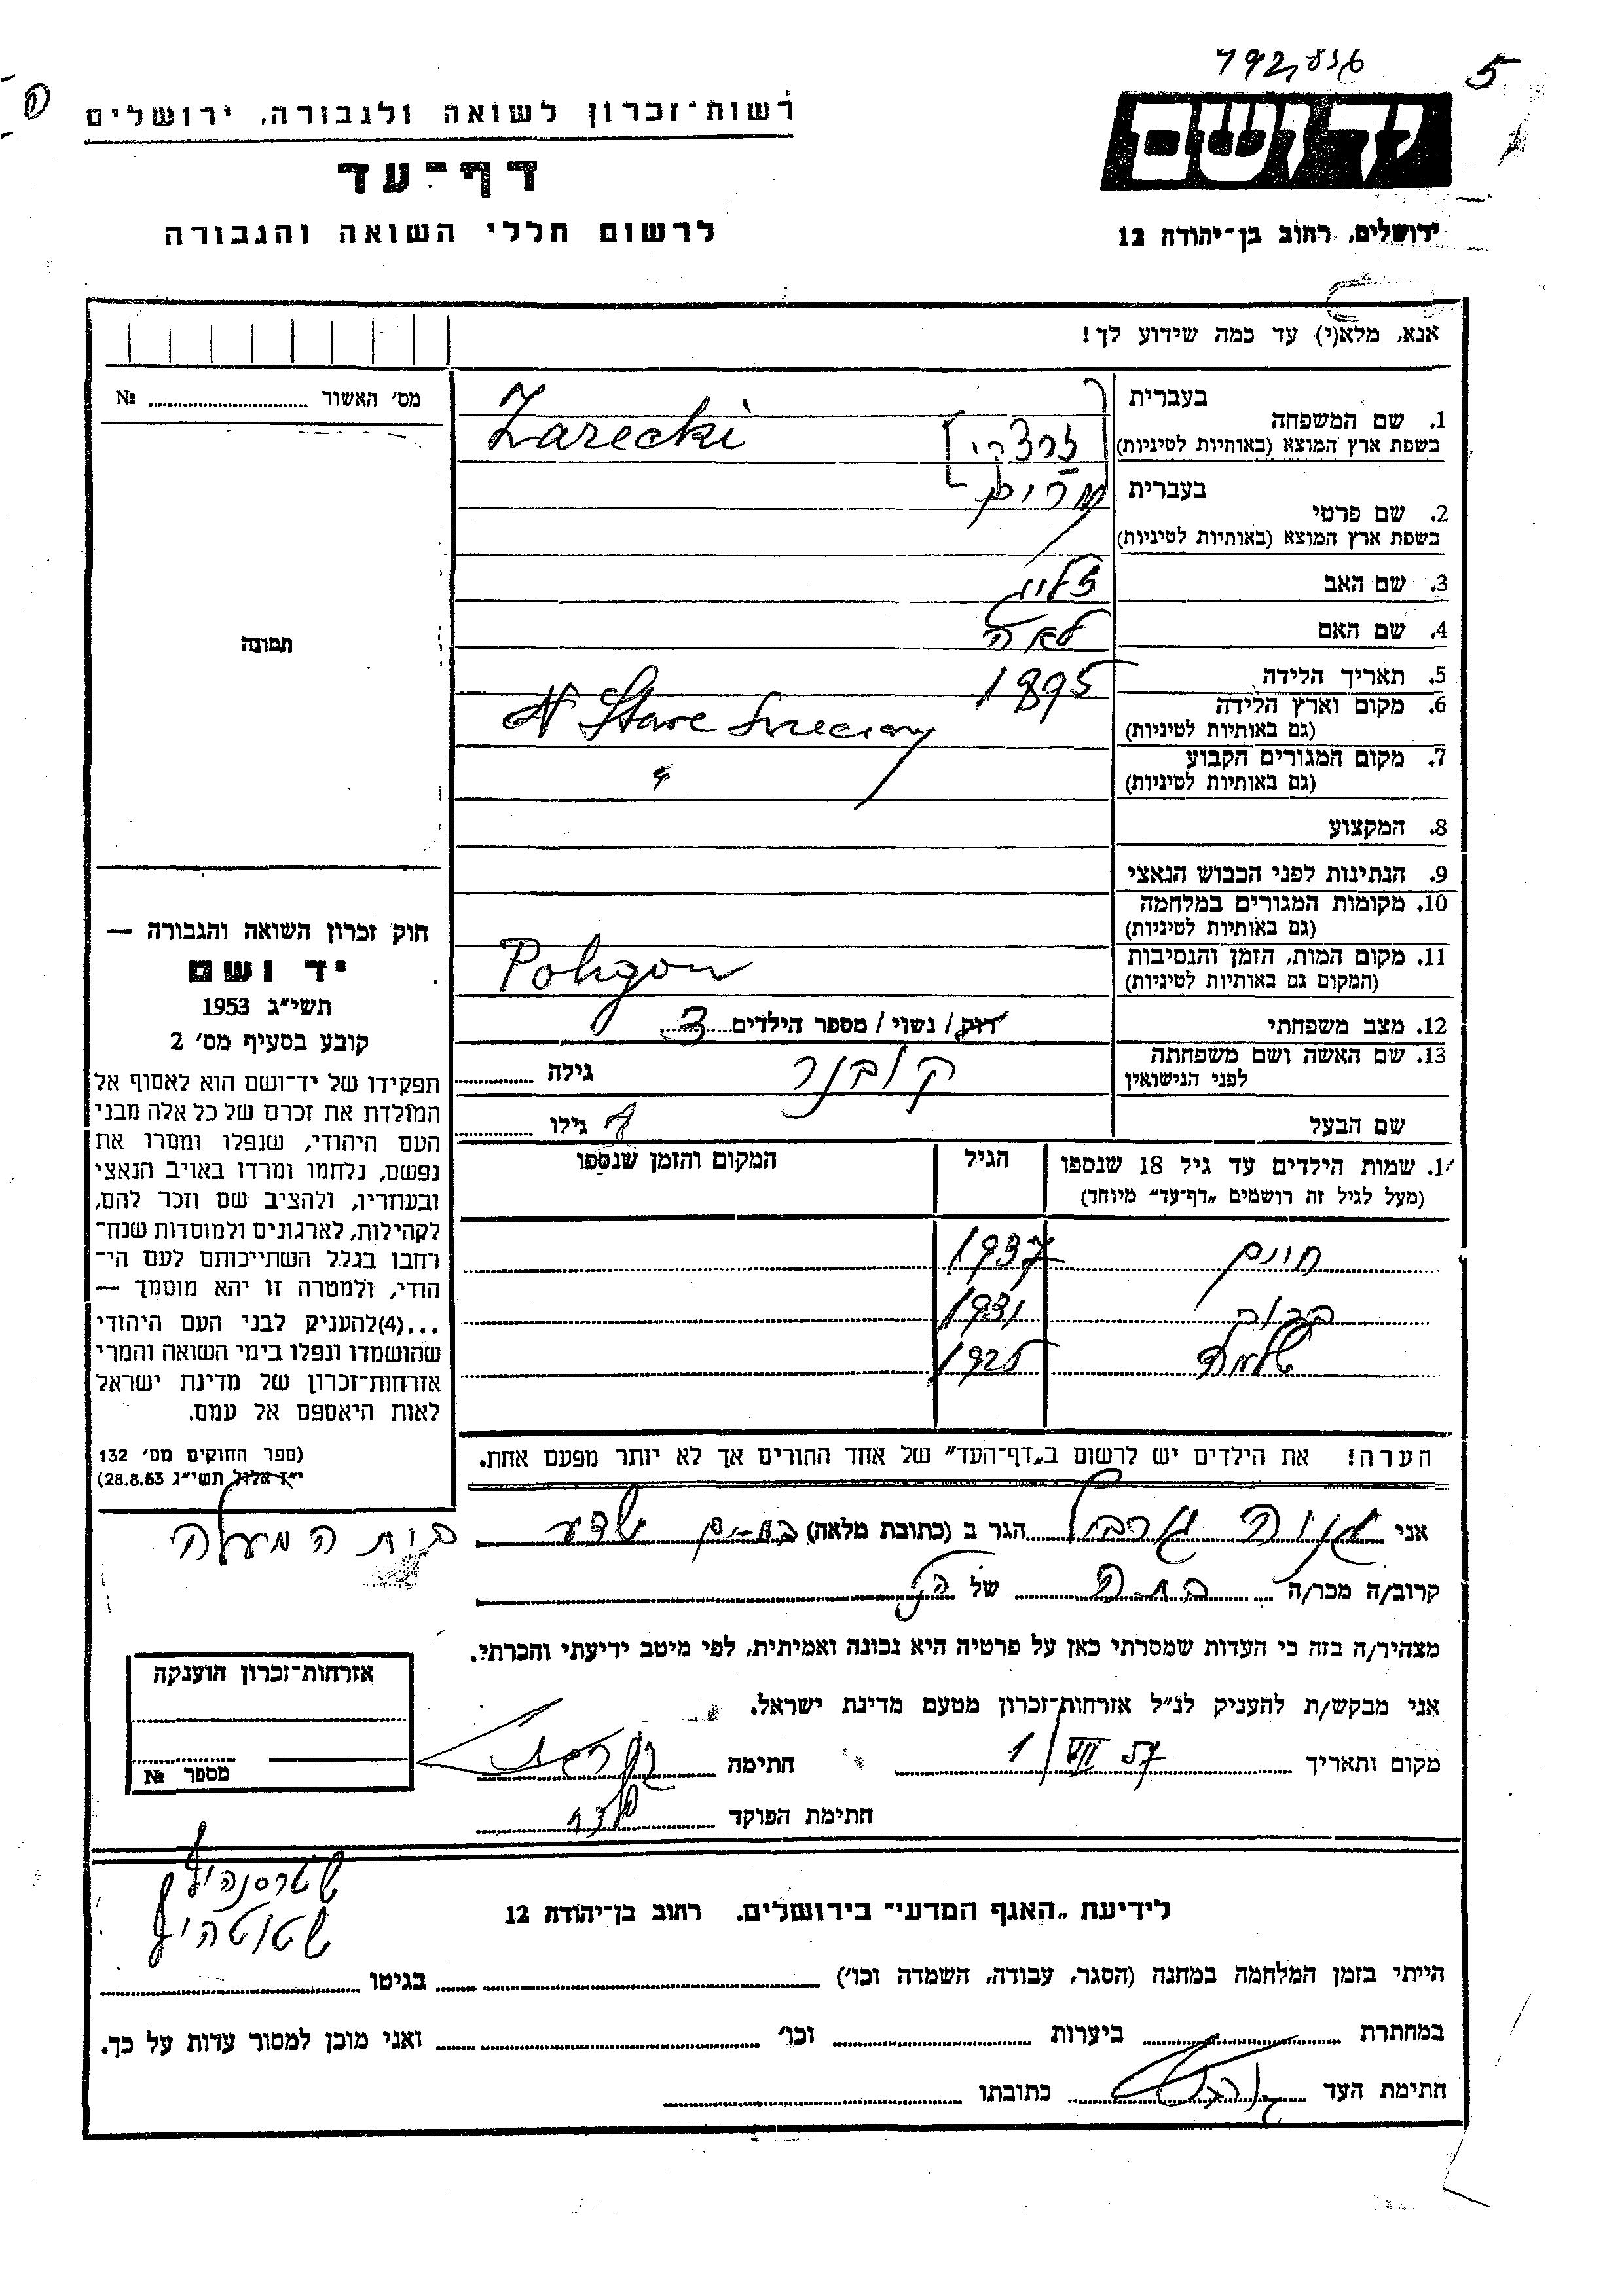 5
רשות־זכרון לשואה ולגבורה, ירושלים
דף־עד
לרשום חללי השואה והגבורה
יד ושם
ירושלים, רחוב בן־יהודה 12
אנא, מלא(י) עד כמה שידוע לך!
מס׳ האשור № 
1. שם המשפחה
בעברית
זרצקי
בשפת ארץ המוצא (באותיות לטיניות)
Zarecki
2. שם פרטי
בעברית
מרים
בשפת ארץ המוצא (באותיות לטיניות)
3. שם האב
זליג
4. שם האם
לאה
5. תאריך הלידה
1895
6. מקום וארץ הלידה
(גם באותיות לטיניות)
N Stare Święciany
7. מקום המגורים הקבוע
(גם באותיות לטיניות)
״
8. המקצוע
9. הנתינות לפני הכבוש הנאצי
10. מקומות המגורים במלחמה
(גם באותיות לטיניות)
11. מקום המות, הזמן והנסיבות
(המקום גם באותיות לטיניות)
Poligon
12. מצב משפחתי
רוק / נשוי / מספר הילדים 3
13. שם האשה ושם משפחתה
לפני הנישואין
קובנר
גילה
שם הבעל
גילו
תמונה
חוק זכרון השואה והגבורה —
יד ושם
תשי״ג 1953
קובע בסעיף מס׳ 2
תפקידו של יד־ושם הוא לאסוף אל
המולדת את זכרם של כל אלה מבני
העם היהודי, שנפלו ומסרו את
נפשם, נלחמו ומרדו באויב הנאצי
ובעוזריו, ולהציב שם וזכר להם,
לקהילות, לארגונים ולמוסדות שנח־
רחבו בגלל השתייכותם לעם הי־
הודי, ולמטרה זו יהא מוסמך —
...(4)להעניק לבני העם היהודי
שהושמדו ונפלו בימי השואה והמרי
אזרחות־זכרון של מדינת ישראל
לאות היאספם אל עמם.
(ספר החוקים מס׳ 132
י״ז אלול תשי״ג 28.8.53)
14. שמות הילדים עד גיל 18 שנספו
(מעל לגיל זה רושמים „דף־עד״ מיוחד)
הגיל
המקום והזמן שנספו
חיים 1937
1931
שלמה 1925
הערה! את הילדים יש לרשום ב„דף־העד״ של אחד ההורים אך לא יותר מפעם אחת.
אני הגר ב (כתובת מלאה)
קרוב/ה מכר/ה של
מצהיר/ה בזה כי העדות שמסרתי כאן על פרטיה היא נכונה ואמיתית, לפי מיטב ידיעתי והכרתי.
אני מבקש/ת להעניק לנ״ל אזרחות־זכרון מטעם מדינת ישראל.
מקום ותאריך 1/VII 57 חתימה
חתימת הפוקד
אזרחות־זכרון הוענקה
מספר №
לידיעת „האגף המדעי״ בירושלים. רחוב בן־יהודה 12
הייתי בזמן המלחמה במחנה (הסגר, עבודה, השמדה וכו׳) בגיטו
במחתרת ביערות וכו׳ ואני מוכן למסור עדות על כך.
חתימת העד כתובתו